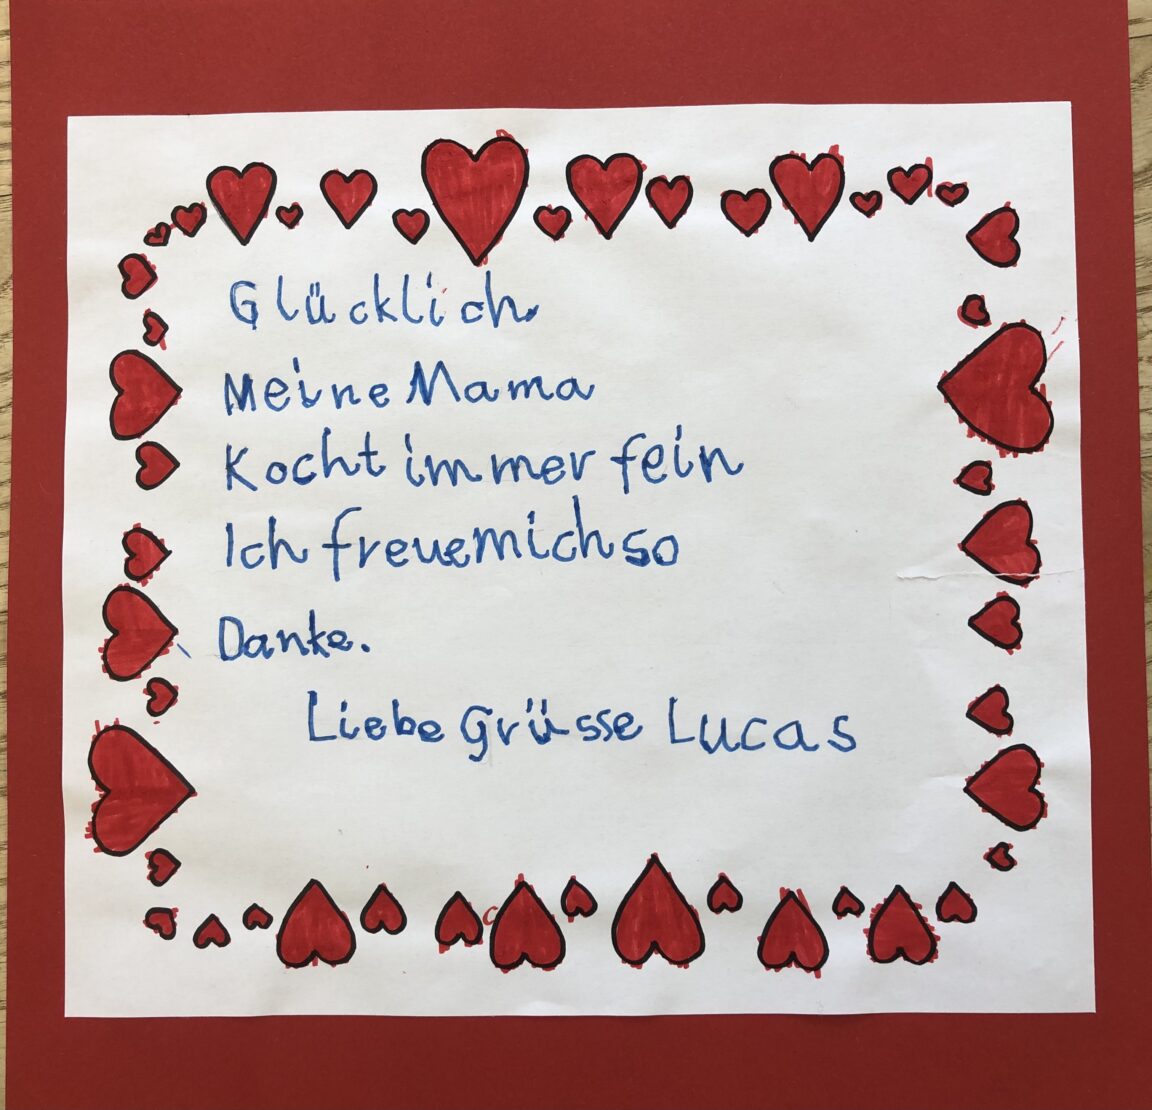 Glücklich
Meine Mama
Kocht immer fein
Ich freue mich so
Danke.
Liebe Grüsse Lucas